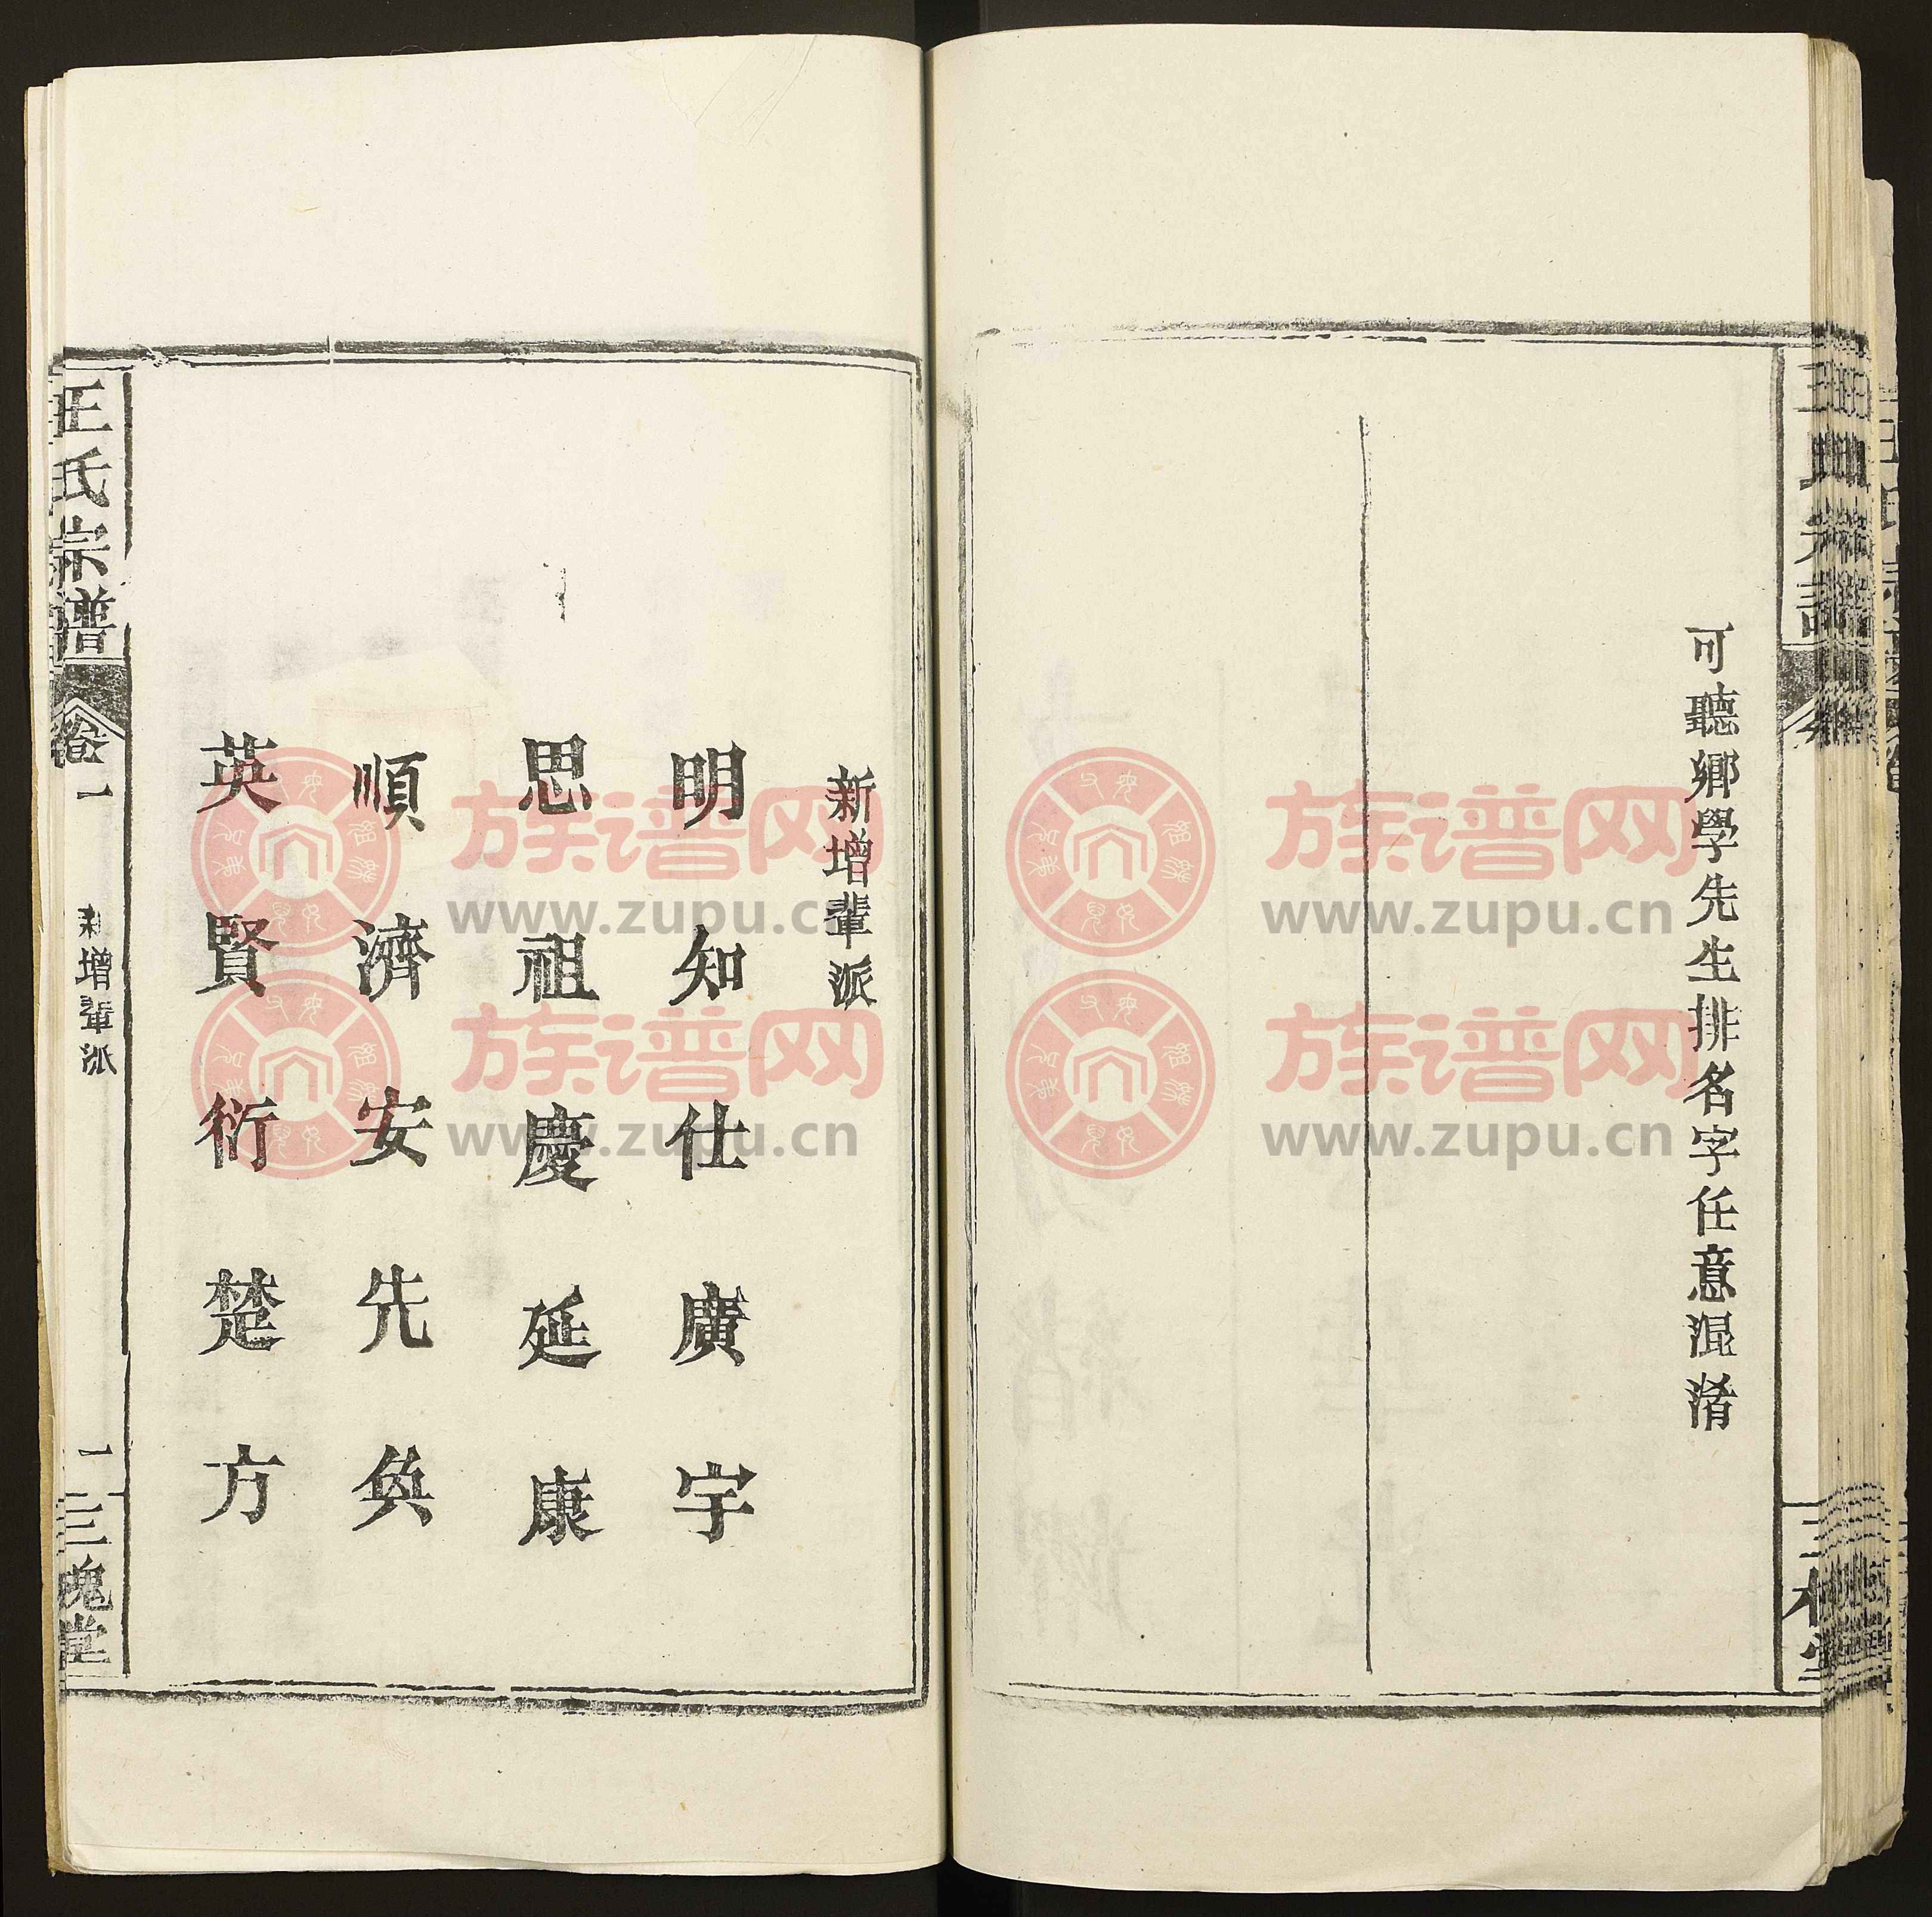 可聽鄉學先生排名字任意混淆
新增輩派
明知仕廣宇
思祖慶延康
順濟安先奐
英賢衍楚方
王氏宗譜
卷一
新增輩派
一
三槐堂
族谱网
www.zupu.cn
族谱网
www.zupu.cn
族谱网
www.zupu.cn
族谱网
www.zupu.cn